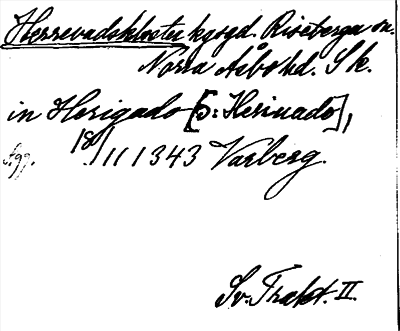 Herrevadskloster kgsgd. Riseberga sn.
Norra Åsbo hd. Sk.
in Herigado [ɔ: Herinado],
Agg. 18/11 1343 Varberg.
Sv. Trakt. II.